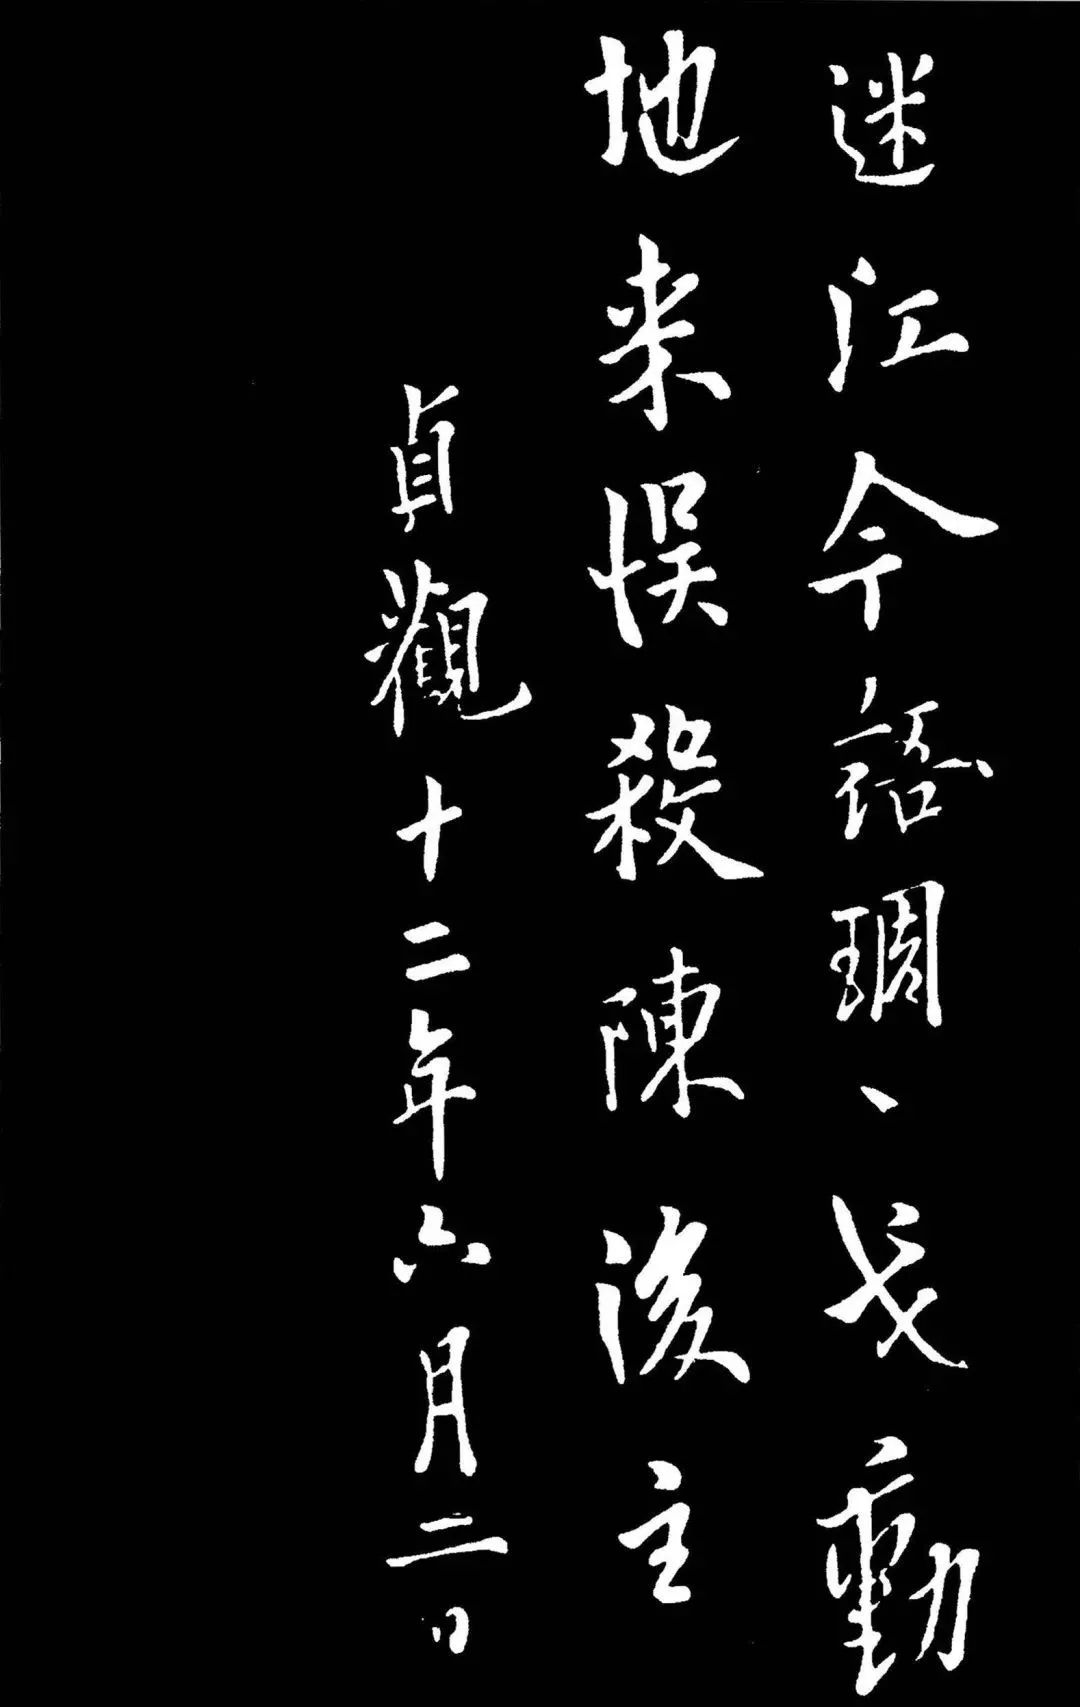 迷江令語琱、戈動
地来悮殺陳後主
貞觀十二年六月二日